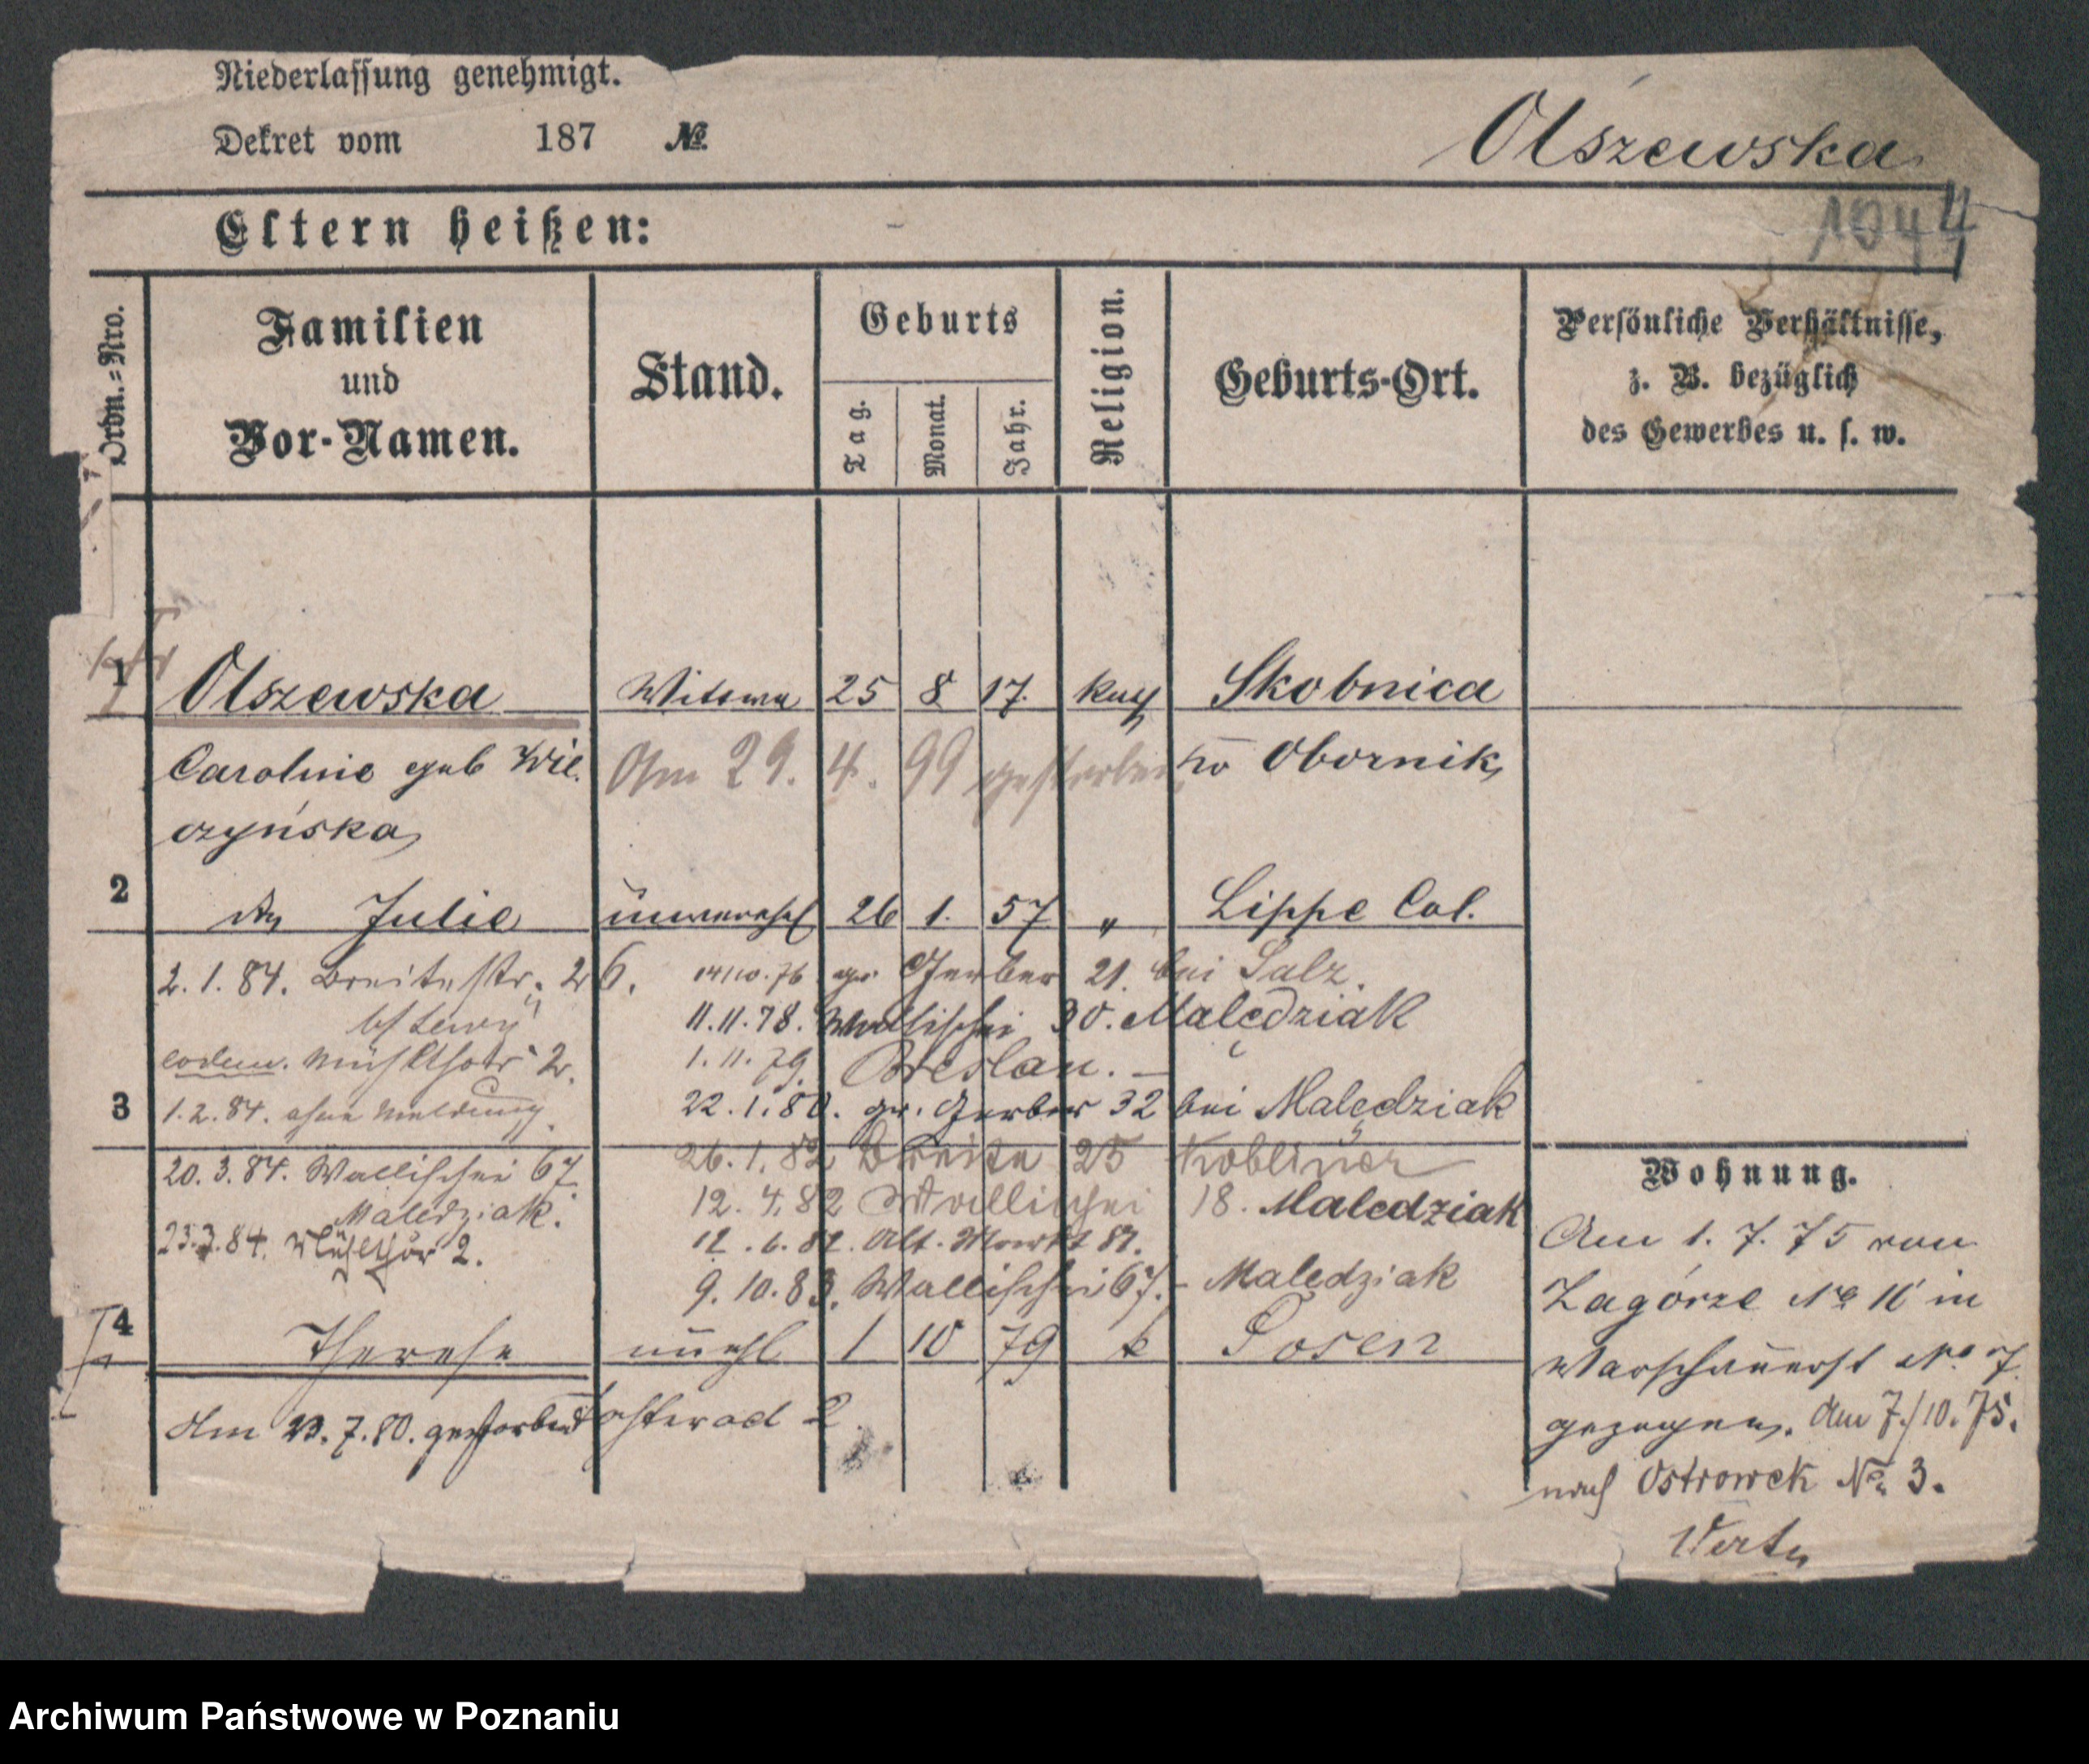 Niederlassung genehmigt.
Dekret vom 187 №
Olszewska
Eltern heißen: -
1044
Ordn.=Nro.
Familien
und
Vor-Namen.
Stand.
Geburts
Tag.
Monat.
Jahr.
Religion.
Geburts-Ort.
Persönliche Verhältnisse,
z. B. bezüglich
des Gewerbes u. s. w.
1 Olszewska Wittwe 25 8 17. kath Skobnica
Caroline geb Wil. Am 29. 4. 99 gestorben Obornik
czyńska
2 Julie unverehel 26 1. 57 " Lippe Col.
2. 1. 84. Breitestr. 26. 14/10. 76 gr Gerber 21. bei Salz.
11. 11. 78. Wallischei 30. Malędziak
eodem. Mühlthor 2. 1. 11. 79. Breslau. —
3 1. 2. 84. ohne Meldung. 22. 1. 80. gr. Gerber 32 bei Malędziak
26. 1. 82 Breite 25 Kobliner
20. 3. 84. Wallischei 67 12. 4. 82 Wallischei 18. Maledziak
Maledziak.
23. 3. 84. Mühlthor 2. 12. 6. 82. Alt. Markt 87.
9. 10. 83. Wallischei 67. - Maledziak
4 Therese unehl 1 10 79 k Posen
Am 23. 7. 80. gestorben
Wohnung.
Am 1. 7. 75 von
Zagórze № 16 in
Warschauerst № 7
gezogen. Am 7./10. 75.
nach Ostrowek № 3.
Verte
Archiwum Państwowe w Poznaniu